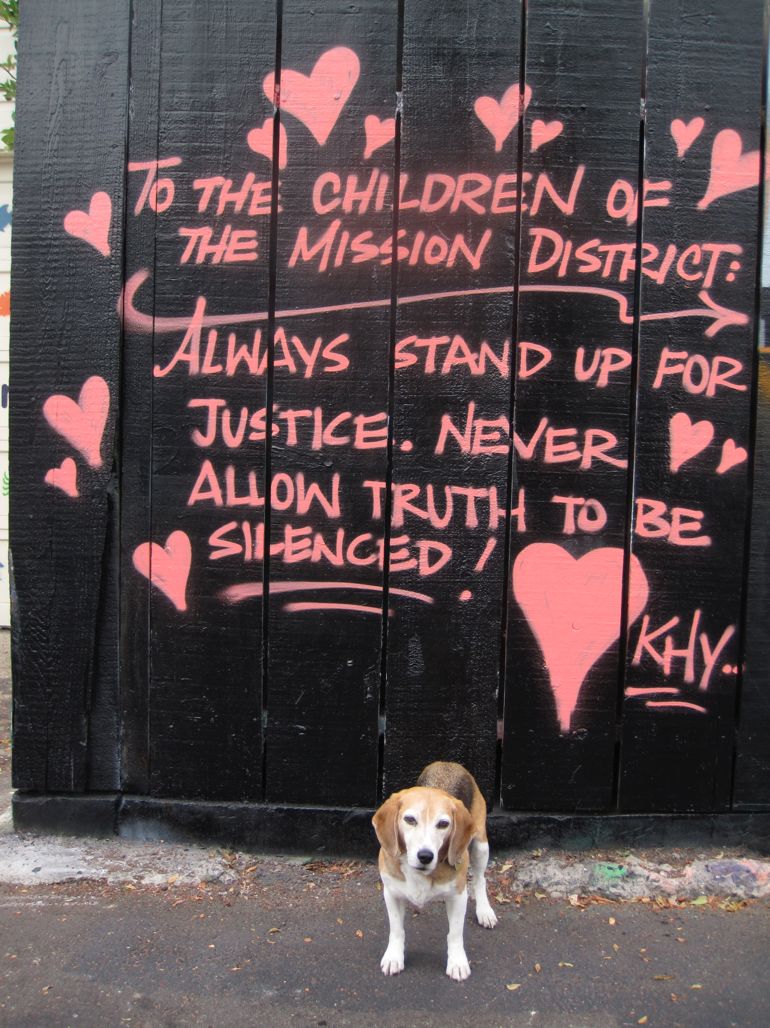 TO THE CHILDREN OF
THE MISSION DISTRICT:
ALWAYS STAND UP FOR
JUSTICE. NEVER
ALLOW TRUTH TO BE
SILENCED!
KHY..